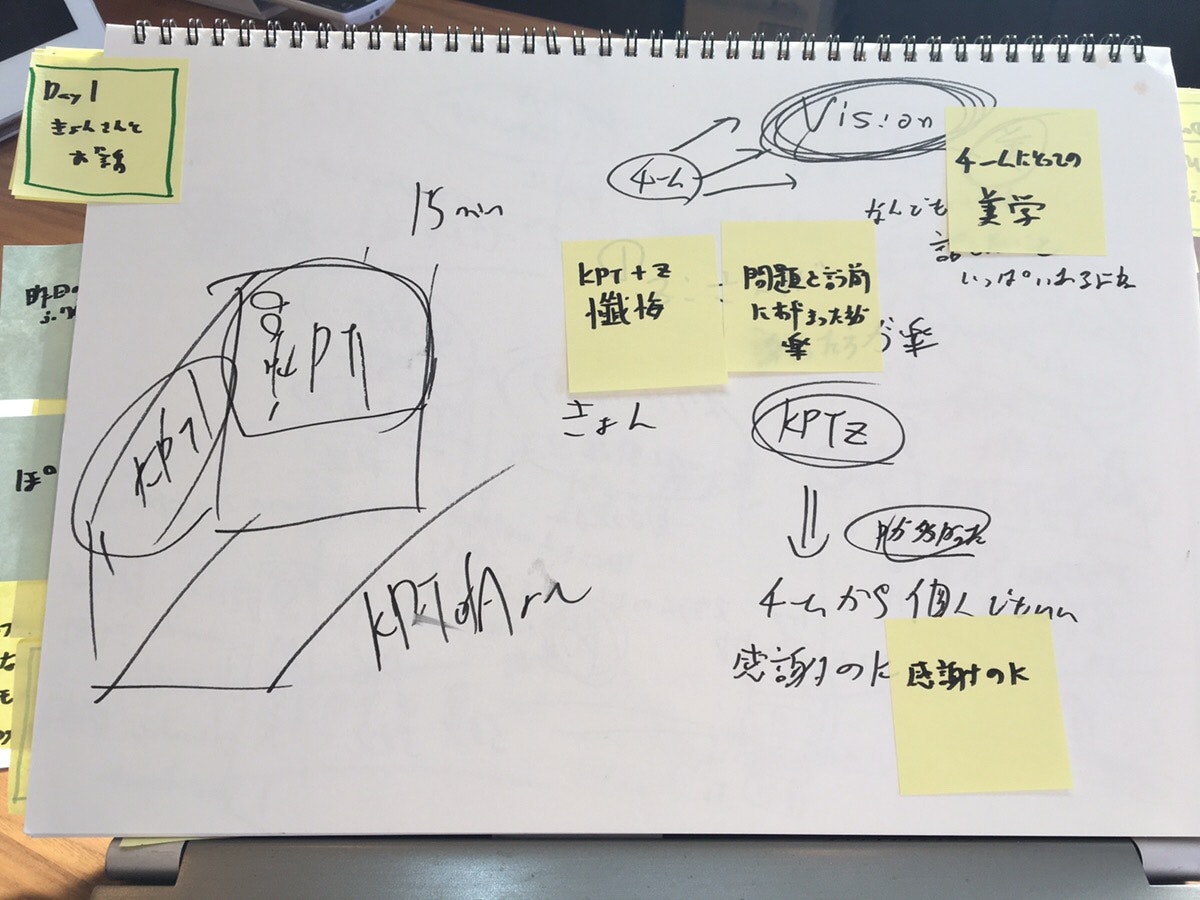 Day 1
きょんさんと
お話
Vision
チーム
チームにとっての
美学
なんでも
いっぱい
15 min
KPT+Z
懺悔
問題と言う前
にあやまった方が
楽
が楽
KPT
KPT
きょん
KPTZ
チームから個人でもいい
感謝のK
感謝のK
KPT of
昨日の